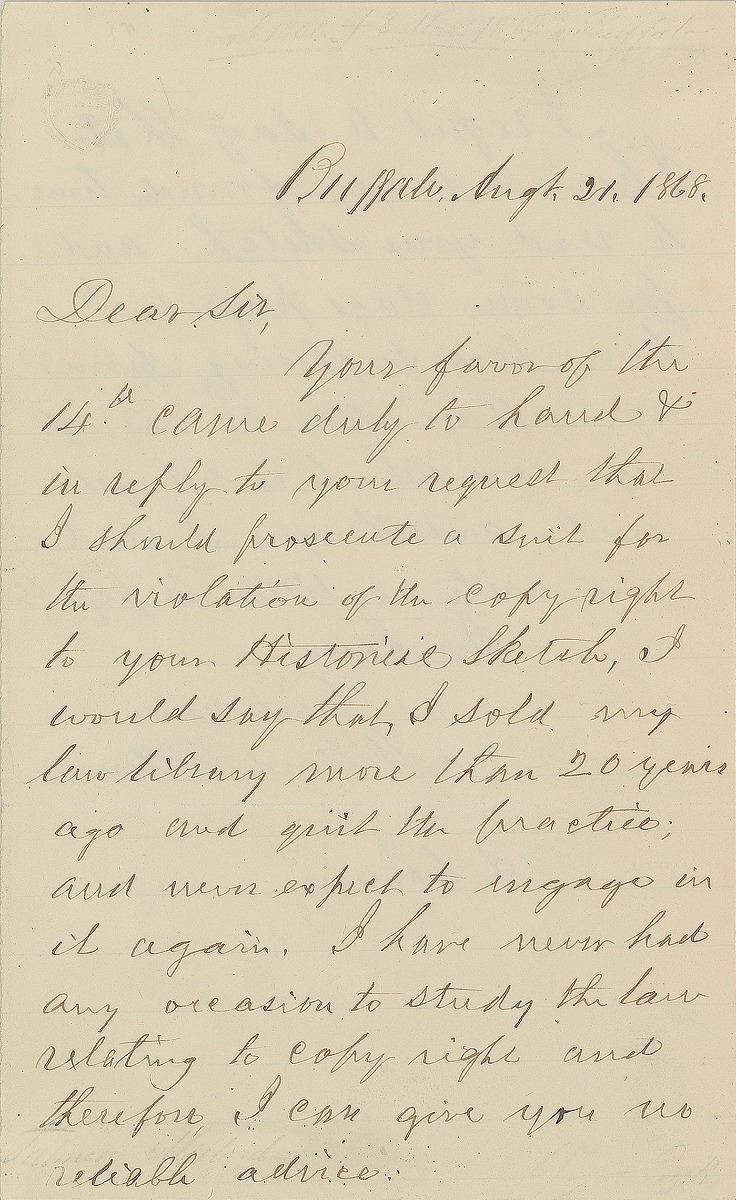 Buffalo, Augt. 21. 1868.
Dear Sir,
Your favor of the
14th came duly to hand &
in reply to your request that
I should prosecute a suit for
the violation of the copy right
to your Historical Sketch, I
would say that, I sold my
law library more than 20 years
ago and quit the practice;
and never expect to engage in
it again. I have never had
any occasion to study the law
relating to copy right and
therefore, I can give you no
reliable advice.